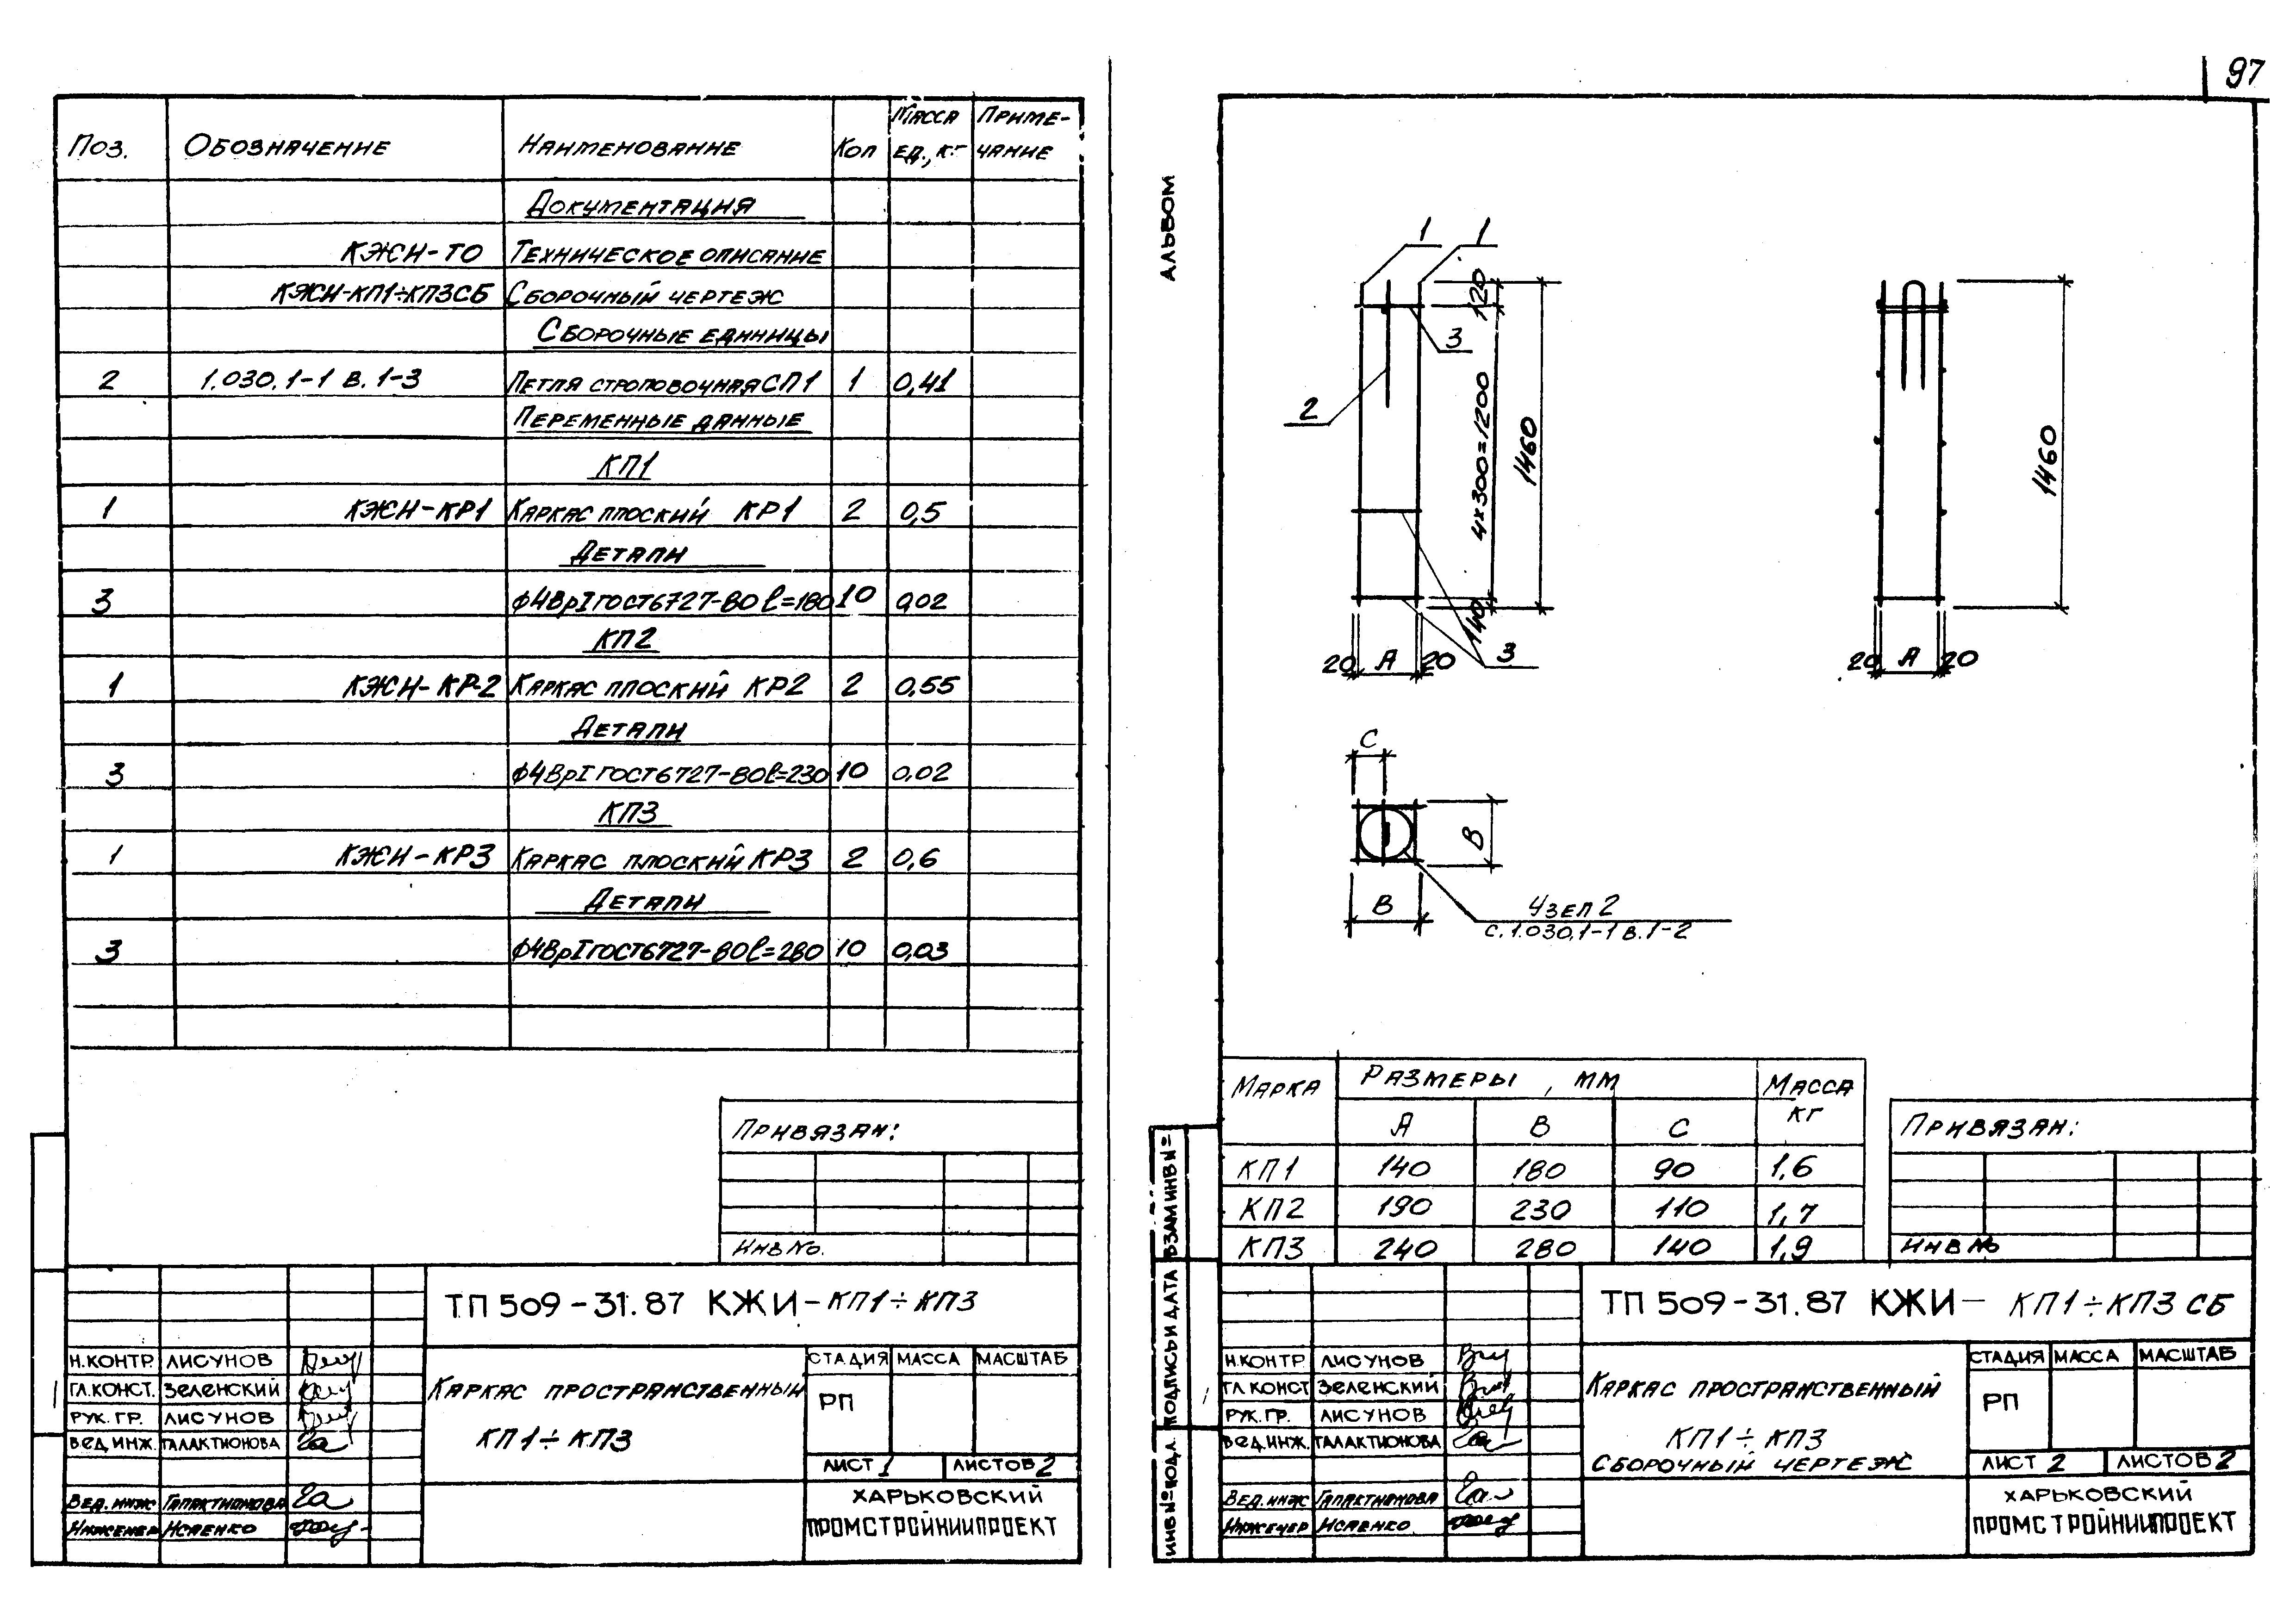 97
Поз. Обозначение Наименование Кол Масса ед., кг Примечание
Документация
КЖИ-ТО Техническое описание
КЖИ-КП1÷КП3СБ Сборочный чертеж
Сборочные единицы
2 1.030.1-1 в. 1-3 Петля строповочная СП1 1 0,41
Переменные данные
КП1
1 КЖИ-КР1 Каркас плоский КР1 2 0,5
Детали
3 ф4ВрI ГОСТ6727-80 ℓ=180 10 0,02
КП2
1 КЖИ-КР-2 Каркас плоский КР2 2 0,55
Детали
3 ф4ВрI ГОСТ6727-80 ℓ=230 10 0,02
КП3
1 КЖИ-КР3 Каркас плоский КР3 2 0,6
Детали
3 ф4ВрI ГОСТ6727-80 ℓ=280 10 0,03
Привязан:
Инв No.
ТП 509-31.87 КЖИ-КП1÷КП3
Н.КОНТР. ЛИСУНОВ
ГЛ.КОНСТ. ЗЕЛЕНСКИЙ
РУК. ГР. ЛИСУНОВ
ВЕД.ИНЖ. ГАЛАКТИОНОВА
Вед. инж Галактионова
Инженер Исаенко
Каркас пространственный
КП1÷КП3
СТАДИЯ МАССА МАСШТАБ
РП
ЛИСТ 1 ЛИСТОВ 2
ХАРЬКОВСКИЙ
ПРОМСТРОЙНИИПРОЕКТ
АЛЬБОМ
1 1
120
3
2
4×300=1200
1460
140
20 А 20
3
1460
20 А 20
С
В
В
Узел 2
с. 1.030.1-1 в. 1-2
Марка Размеры, мм Масса кг
А В С
КП1 140 180 90 1,6
КП2 190 230 110 1,7
КП3 240 280 140 1,9
Привязан:
Инв №
ВЗАМ ИНВ №
ПОДПИСЬ И ДАТА
ИНВ № ПОДЛ.
ТП 509-31.87 КЖИ- КП1÷КП3 СБ
Н.КОНТР. ЛИСУНОВ
ГЛ.КОНСТ ЗЕЛЕНСКИЙ
РУК. ГР. ЛИСУНОВ
ВЕД.ИНЖ. ГАЛАКТИОНОВА
Вед. инж Галактионова
Инженер Исаенко
Каркас пространственный
КП1÷КП3
Сборочный чертеж
СТАДИЯ МАССА МАСШТАБ
РП
ЛИСТ 2 ЛИСТОВ 2
ХАРЬКОВСКИЙ
ПРОМСТРОЙНИИПРОЕКТ